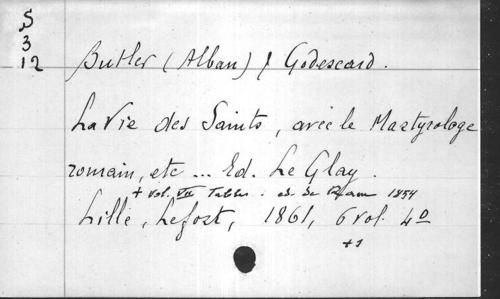 S
3
12
Butler (Alban) & Godescard.
La Vie des Saints, avec le Martyrologe
romain, etc ... Ed. Le Glay.
+ vol. VII Tables. ed. de 1854
Lille, Lefort, 1861, 6 vol. 4º
+1